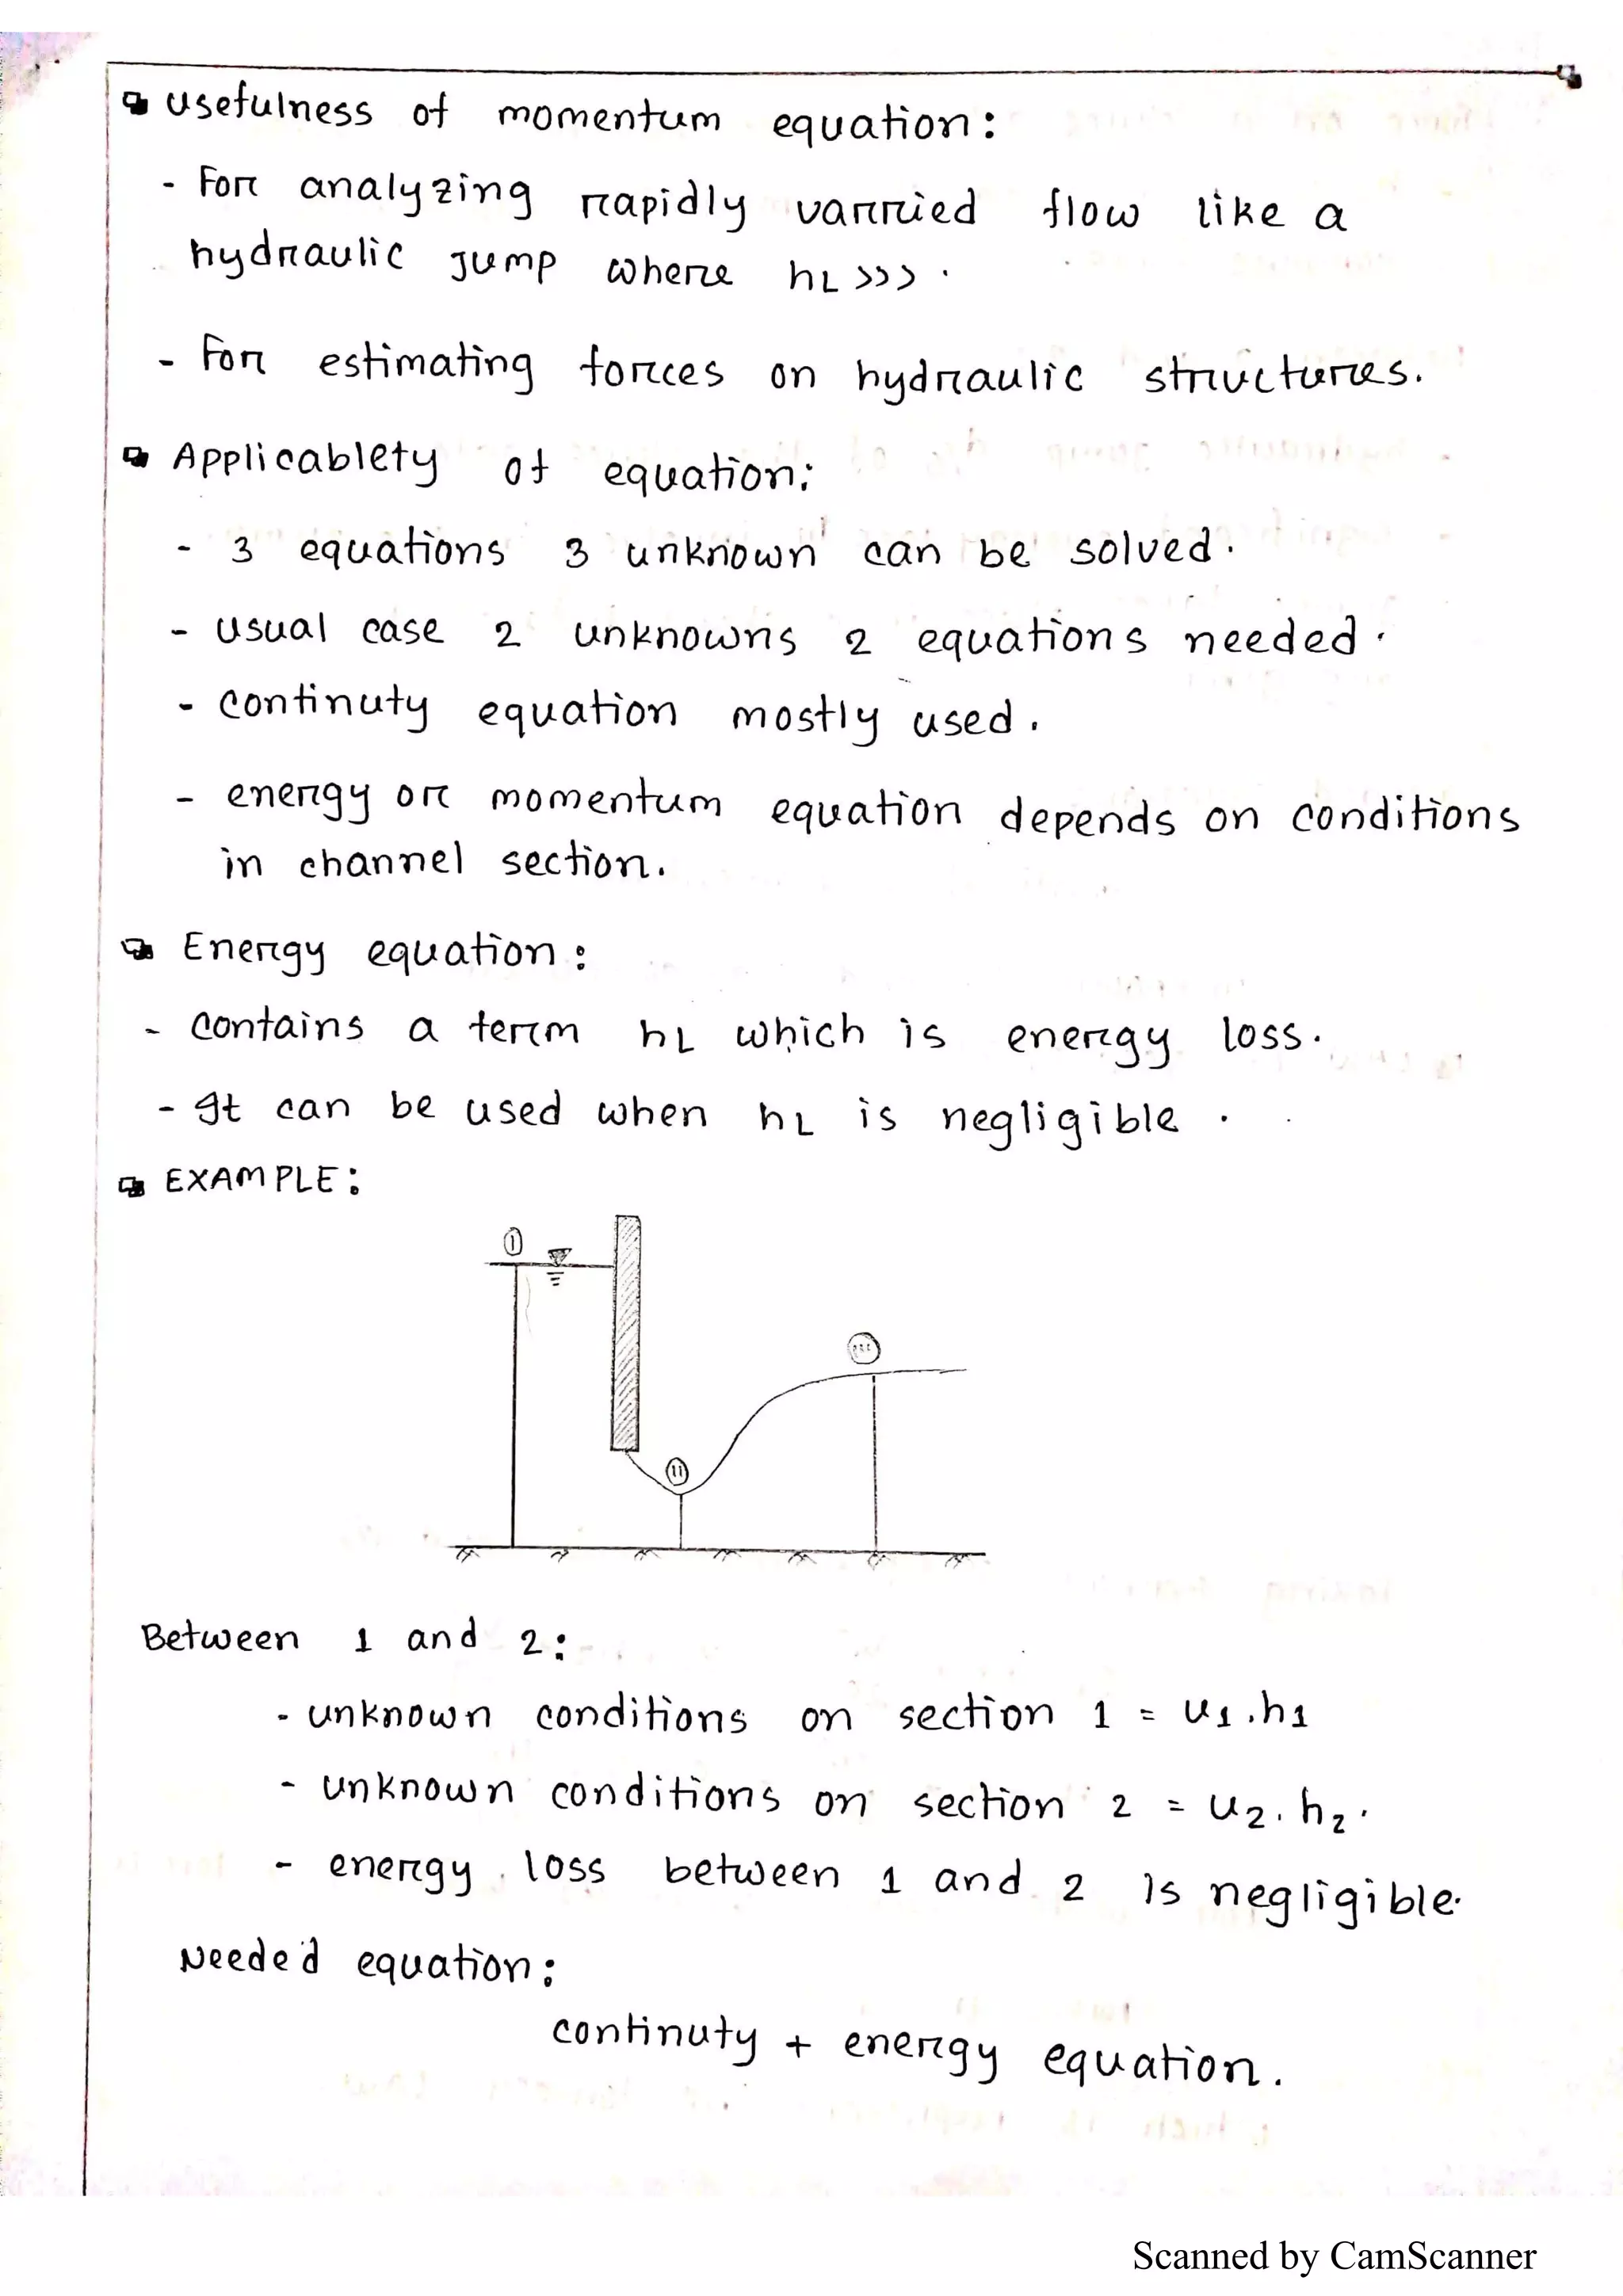 usefulness of momentum equation:
- For analyzing rapidly varried flow like a
hydraulic jump where hL >>> .
- For estimating forces on hydraulic structures.
Applicablety of equation:
- 3 equations 3 unknown can be solved.
- usual case 2 unknowns 2 equations needed.
- continuty equation mostly used.
- energy or momentum equation depends on conditions
in channel section.
Energy equation:
- contains a term hL which is energy loss.
- It can be used when hL is negligible .
EXAMPLE:
i
iii
ii
Between 1 and 2:
- unknown conditions on section 1 = u1.h1
- unknown conditions on section 2 = u2.h2.
- energy loss between 1 and 2 is negligible.
Needed equation:
continuty + energy equation.
Scanned by CamScanner